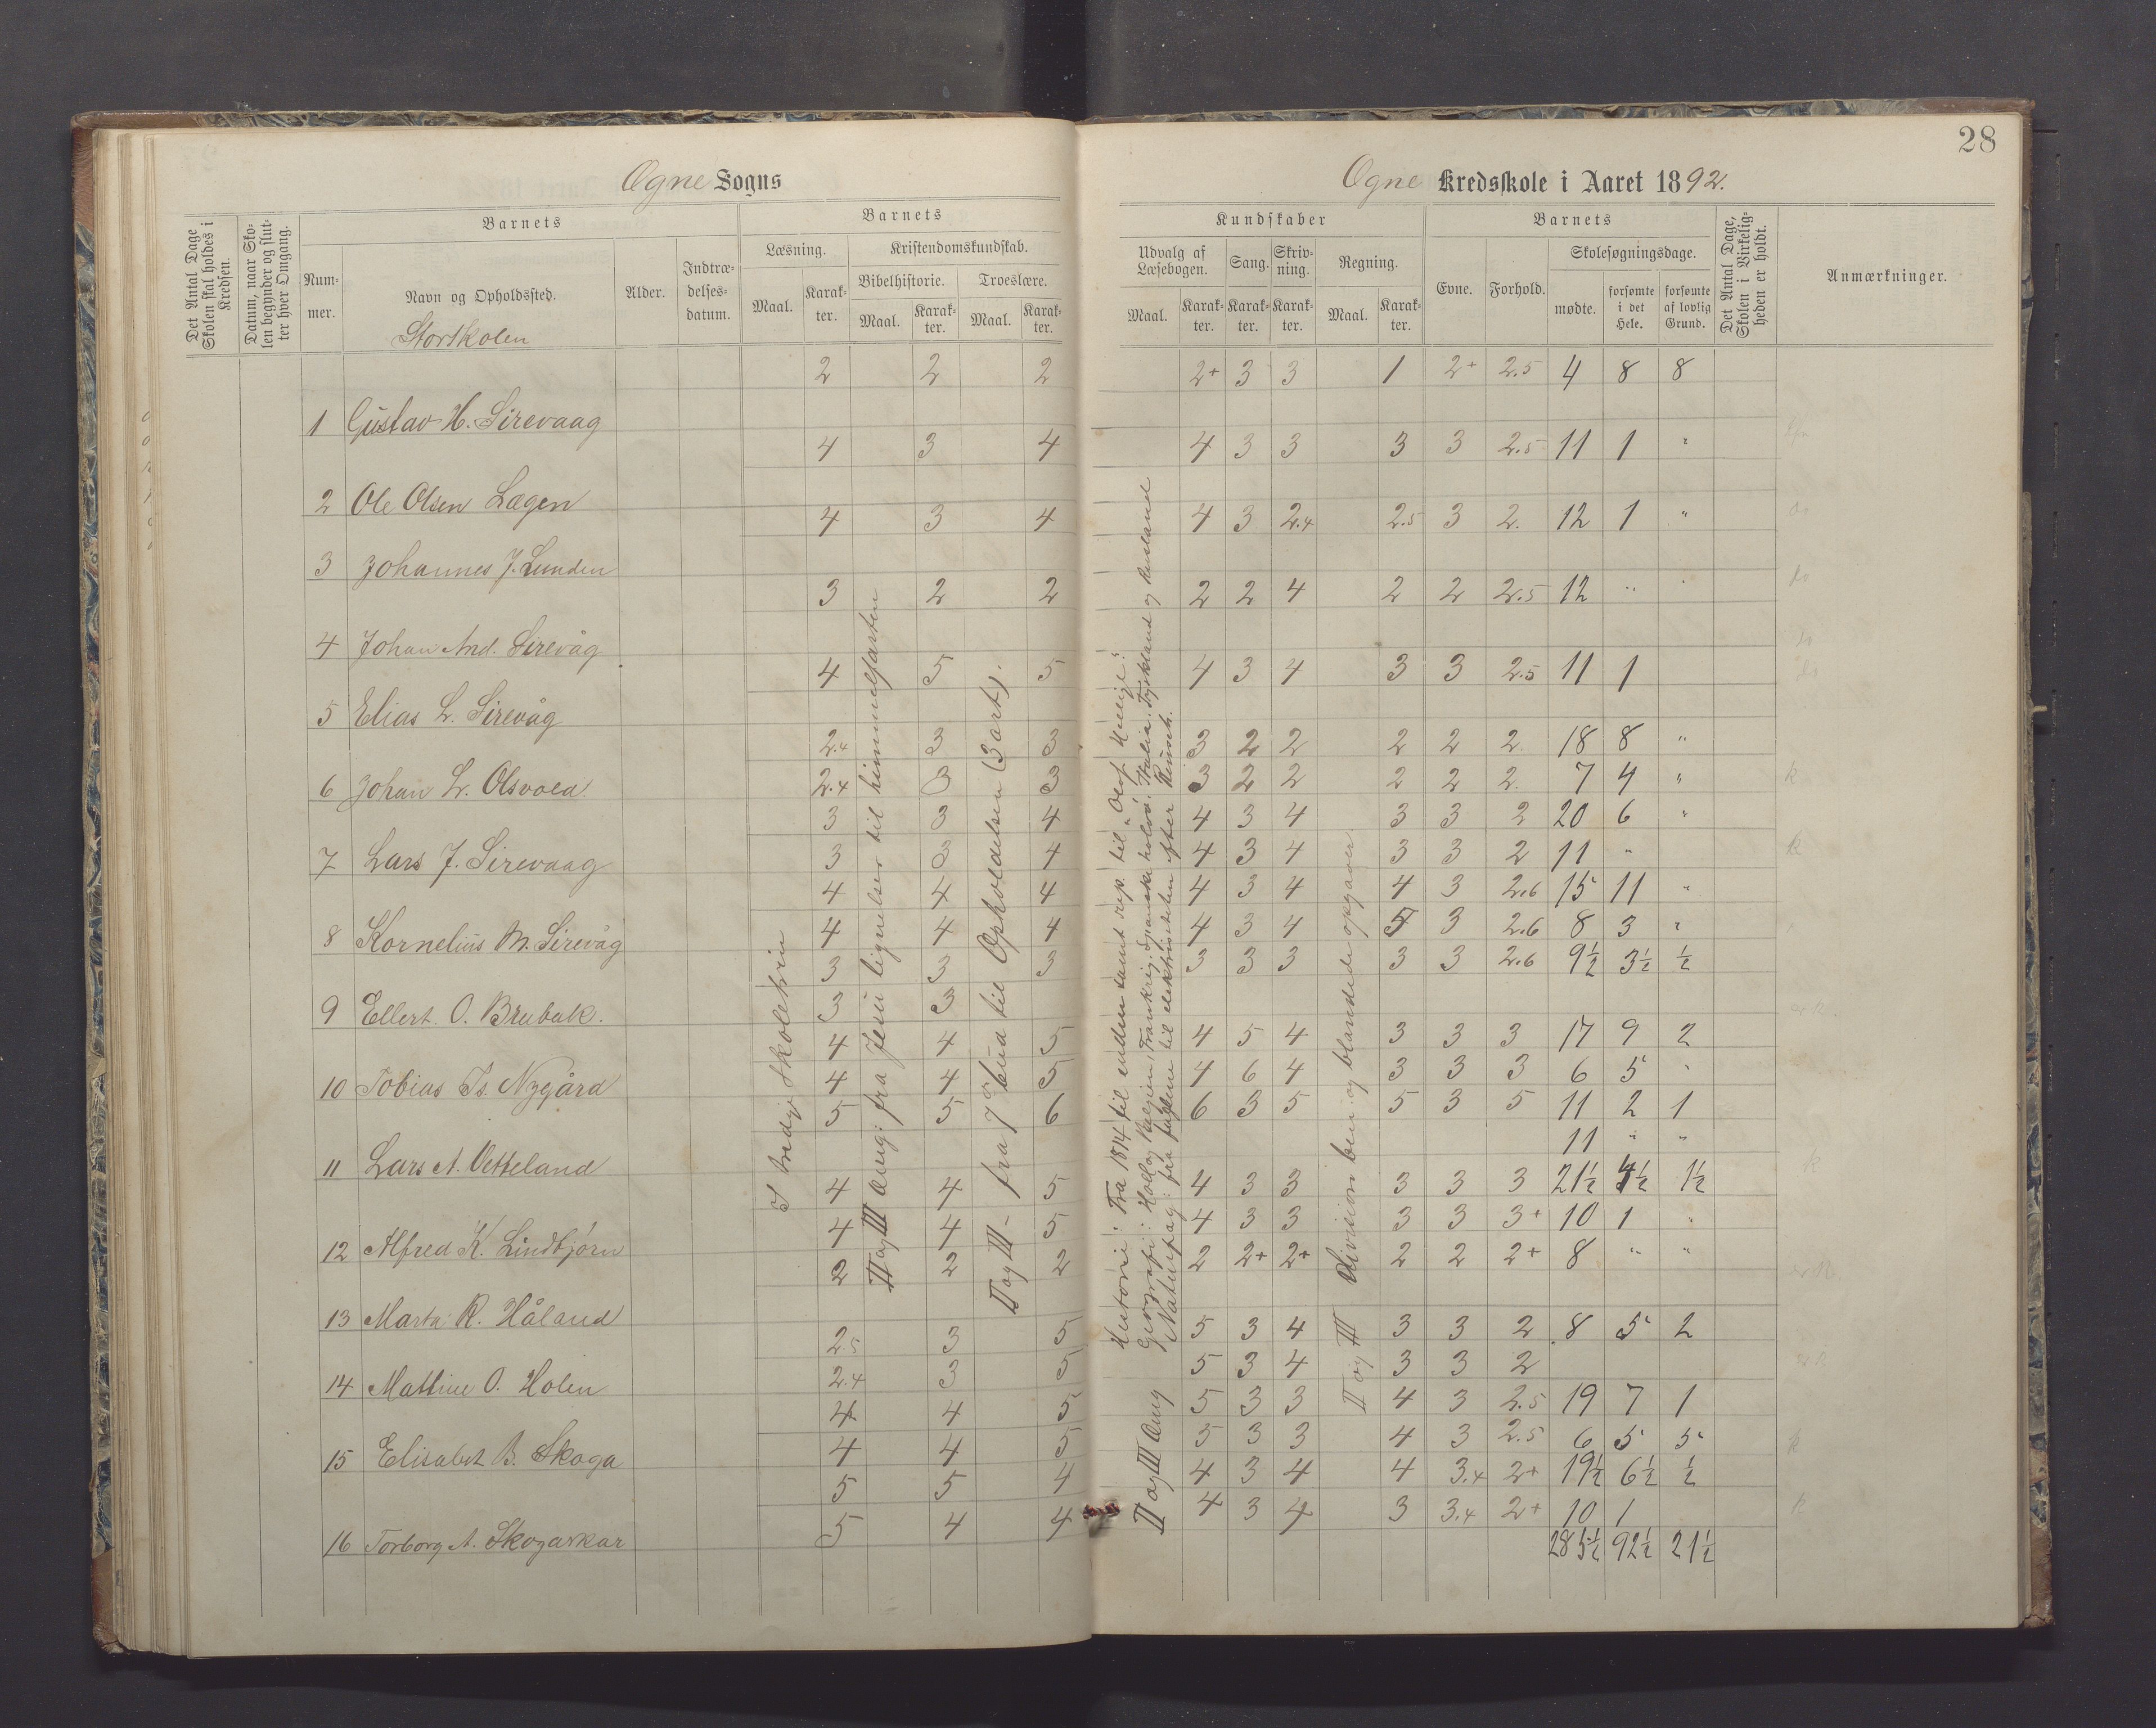 28
Ogne Sogns
Ogne Kredsskole i Aaret 1892.
Det Antal Dage Skolen skal holdes i Kredsen.
Datum, naar Skolen begynder og slutter hver Omgang.
Barnets
Nummer.
Navn og Opholdssted.
Alder.
Indtrædelsesdatum.
Barnets
Læsning.
Kristendomskundskab.
Bibelhistorie.
Troeslære.
Maal.
Karakter.
Maal.
Karakter.
Maal.
Karakter.
Kundskaber
Udvalg af Læsebogen.
Sang.
Skrivning.
Regning.
Maal.
Karakter.
Karakter.
Karakter.
Maal.
Karakter.
Barnets
Evne.
Forhold.
Skolesøgningsdage.
mødte.
forsømte i det Hele.
forsømte af lovlig Grund.
Det Antal Dage, Skolen i Virkeligheden er holdt.
Anmærkninger.
Storskolen
2 2 2 2+ 3 3 1 2+ 2.5 4 8 8
1 Gustav H. Sirevaag
4 3 4 4 3 3 3 3 2.5 11 1 "
2 Ole Olsen Lægen
4 3 4 4 3 2.4 2.5 3 2. 12 1 "
3 Johannes J. Lunden
3 2 2 2 2 4 2 2 2.5 12 "
4 Johan And. Sirevåg
4 5 5 4 3 4 3 3 2.5 11 1
5 Elias L. Sirevåg
2.4 3 3 3 2 2 2 2 2 18 8 "
6 Johan L. Olsvold.
2.4 3 3 3 2 2 2 2 2. 7 4 "
3 3 4 4 3 4 3 3 2 20 6 "
7 Lars J. Sirevaag
3 3 4 4 3 4 3 3 2 11 "
4 4 4 4 3 4 4 3 2.6 15 11 "
8 Kornelius M. Sirevåg
4 4 4 4 3 4 5 3 2.6 8 3 "
3 3 3 3 3 3 3 3 2.6 9½ 3½ ½
9 Ellert O. Brubak.
3 3
4 4 5 4 5 4 3 3 3 17 9 2
10 Tobias Ts. Nygård
4 4 5 4 6 4 3 3 3 6 5 "
5 5 6 6 3 5 5 3 5 11 2 1
11 " "
11 Lars A. Vetteland
4 4 5 4 3 3 3 3 3 21½ 4½ 1½
4 4 5 4 3 3 3 3 3+ 10 1
12 Alfred K. Lindbjørn
2 2 2 2 2+ 2+ 2 2 2+ 8 " "
13 Marta R. Håland
2.5 3 5 5 3 4 3 3 2 8 5 2
14 Mattine O. Holen
2.4 3 5 5 3 4 3 3 2
4 4 5 5 3 3 4 3 2.5 19 7 1
15 Elisabet B. Skoga
4 4 5 5 3 3 4 3 2.5 6 5 5
5 5 4 4 3 4 4 3.4 2+ 19½ 6½ ½
5 4 4 4 3 4 3 3.4 2+ 10 1
16 Torborg A. Skogarkar
285½ 92½ 21½
I tredje Skoletrin
II og III Omg: fra Jesu lignelser til himmelfarten
II og III - fra 7de bud til Opholdelsen (3 art).
II og III Omg
Historie: Fra 1814 til enden samt rep. til "Olof Hellige".
Geografi: Holl og Belgien, Frankrig, Spanske halvø, Italia, Tyskland og Rusland
Naturfag: fra fuglene til elektrisiteten efter Reinsch.
II og III Division ben. og blandede opgaver